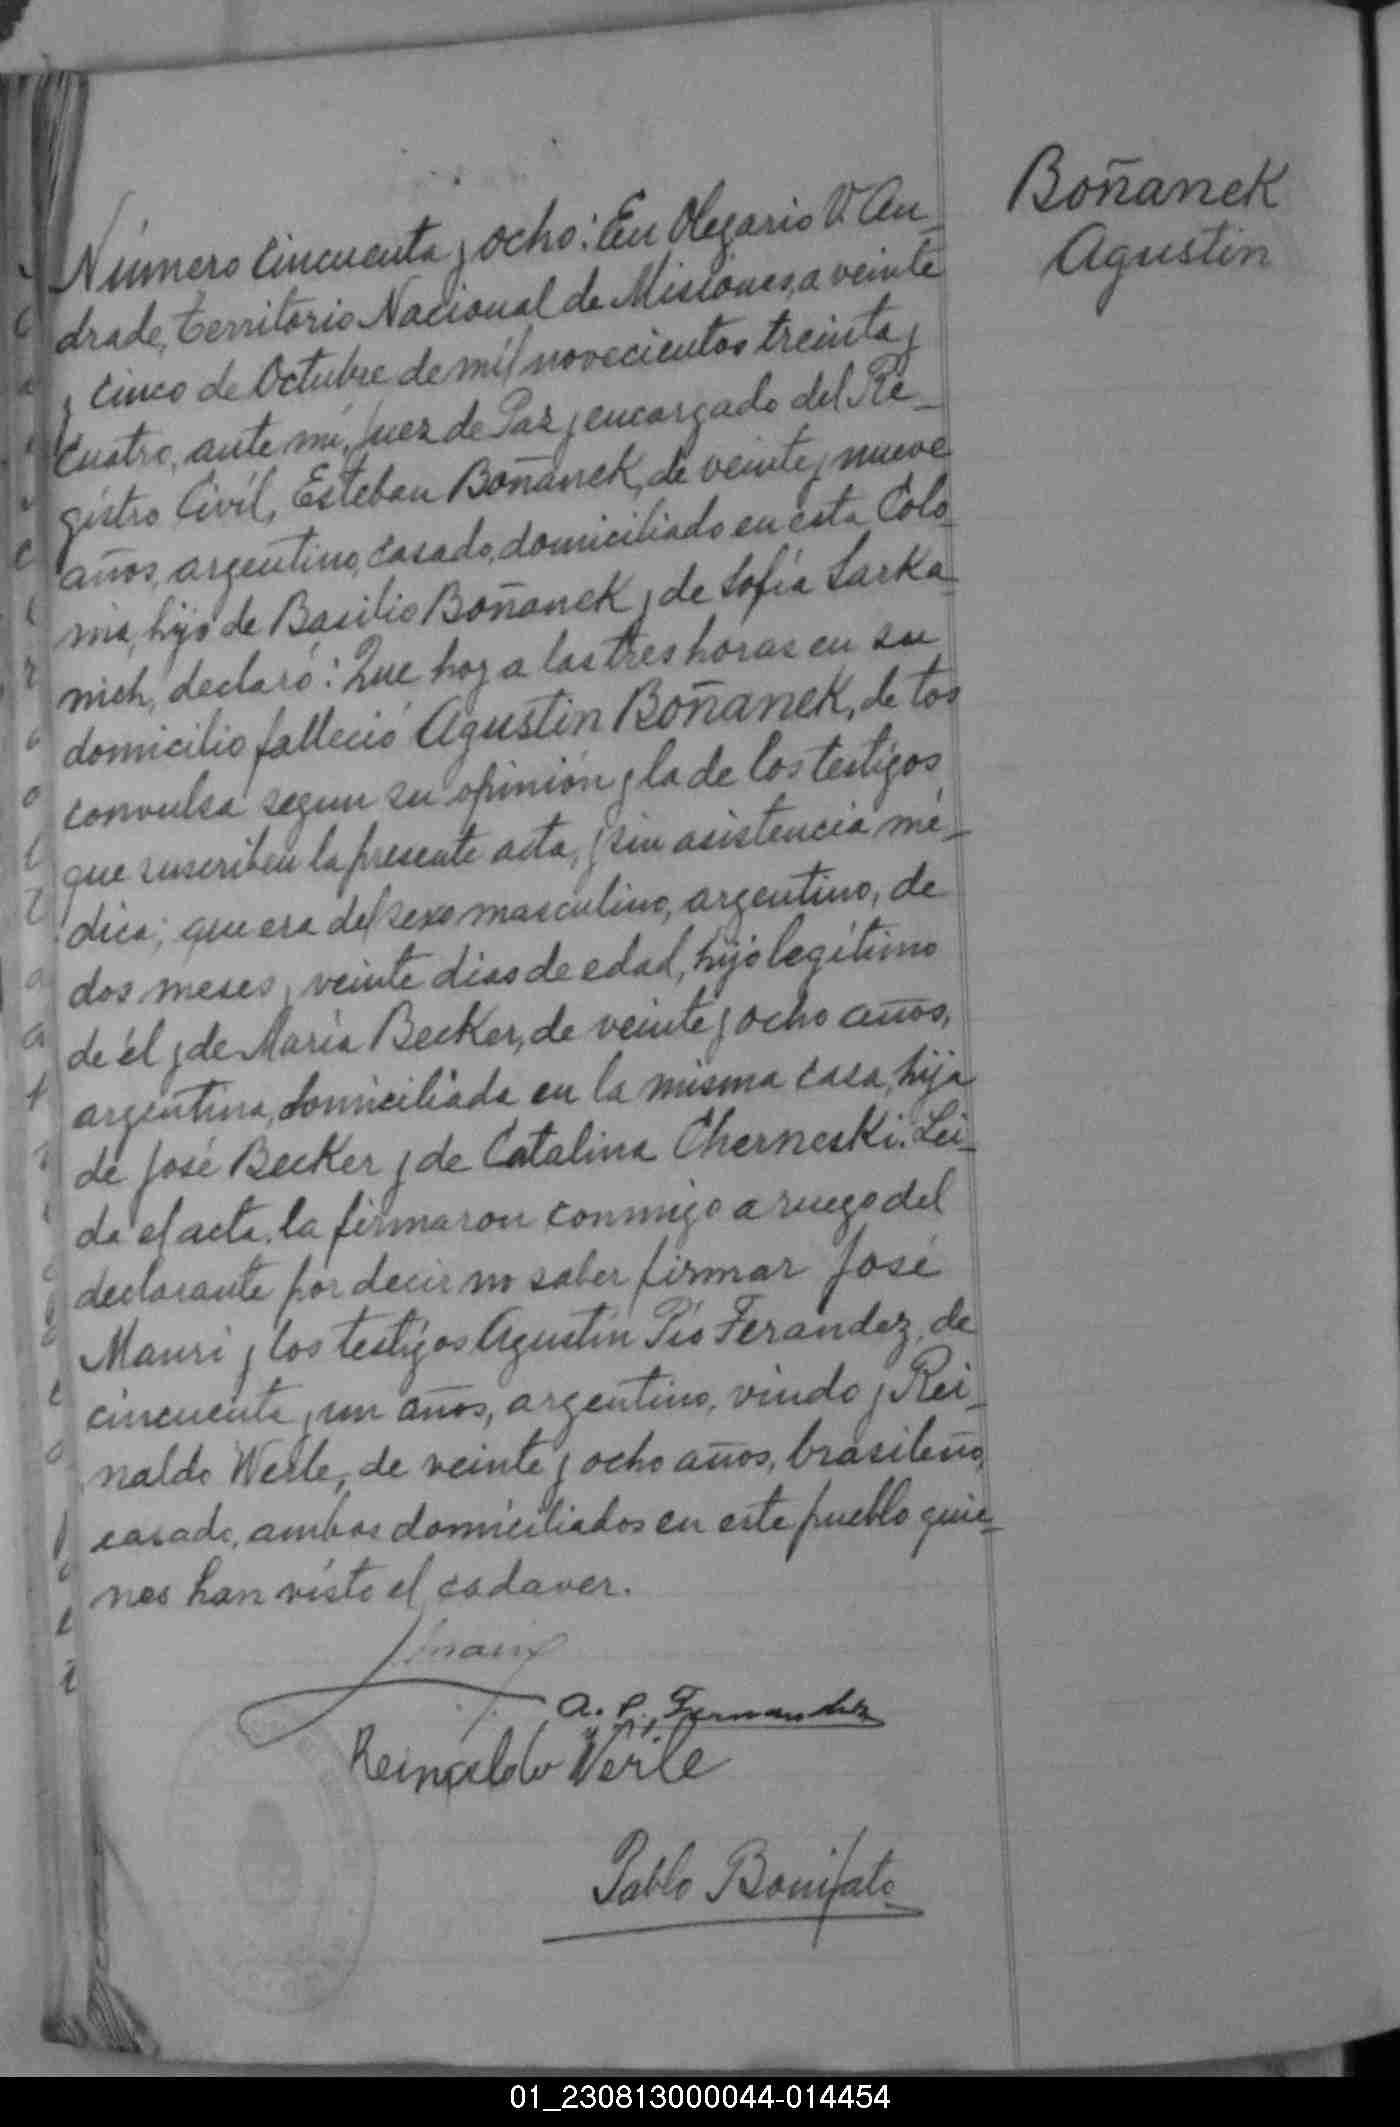 Boñanek
Agustin
Número Cincuenta y ocho: En Olegario V. An-
drade, territorio Nacional de Misiones, a veinte
y cinco de Octubre de mil novecientos treinta y
cuatro, ante mí, Juez de Paz y encargado del Re-
gistro Civil, Esteban Boñanek, de veinte y nueve
años, argentino, casado, domiciliado en esta Colo-
nia, hijo de Basilio Boñanek y de Sofía Sarka-
nich, declaró: Que hoy a las tres horas en su
domicilio falleció Agustin Boñanek, de tos
convulsa segun su opinión y la de los testigos
que suscriben la presente acta, y sin asistencia mé-
dica; que era del sexo masculino, argentino, de
dos meses y veinte dias de edad, hijo legítimo
de él y de María Becker, de veinte y ocho años,
argentina, domiciliada en la misma casa, hija
de José Becker y de Catalina Cherneski. Lei-
da el acta, la firmaron conmigo a ruego del
declarante por decir no saber firmar José
Mauri y los testigos Agustín Pío Ferandez, de
cincuenta y un años, argentino, viudo y Rei-
naldo Werle, de veinte y ocho años, brasileño,
casado, ambos domiciliados en este pueblo quie-
nes han visto el cadaver.
A. P. Fernandez
Reinaldo Werle
Pablo Bonifato
01_230813000044-014454